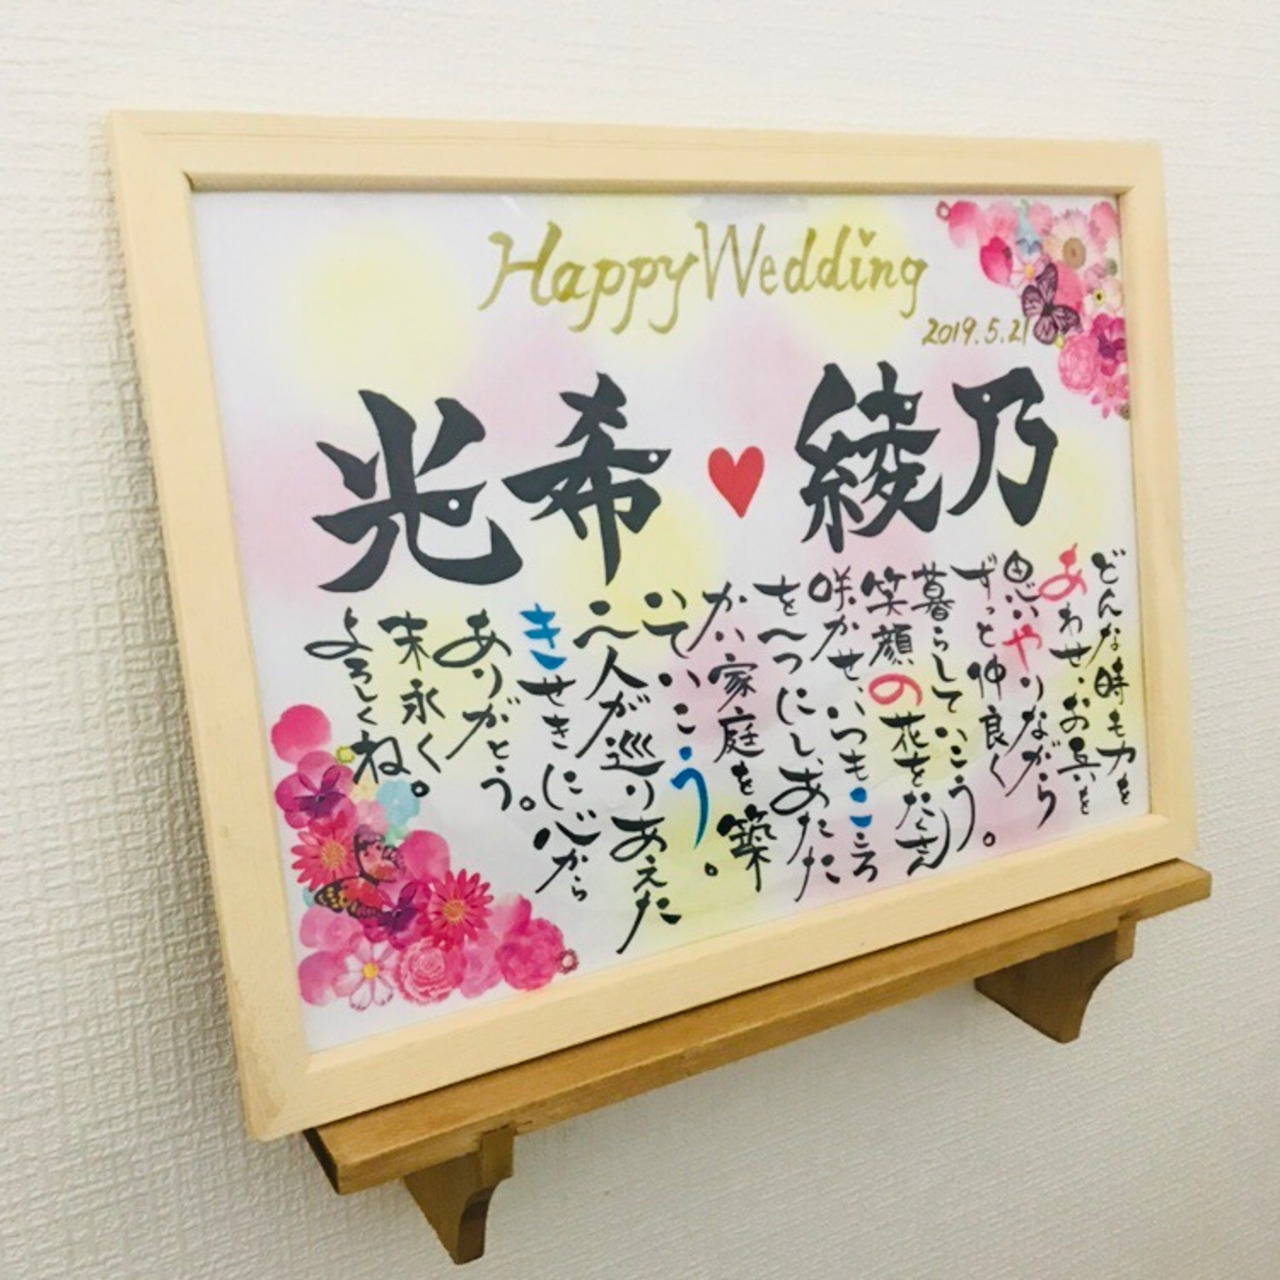 Happy Wedding
2019.5.21
光希♥綾乃
どんな時も力を
あわせ、お互いを
思いやりながら
ずっと仲良く
暮らしていこう。
笑顔の花をたくさん
咲かせ、いつもこころ
を一つにし、あたた
かい家庭を築
いていこう。
二人が巡りあえた
きせきに心から
ありがとう。
末永く。
よろしくね。